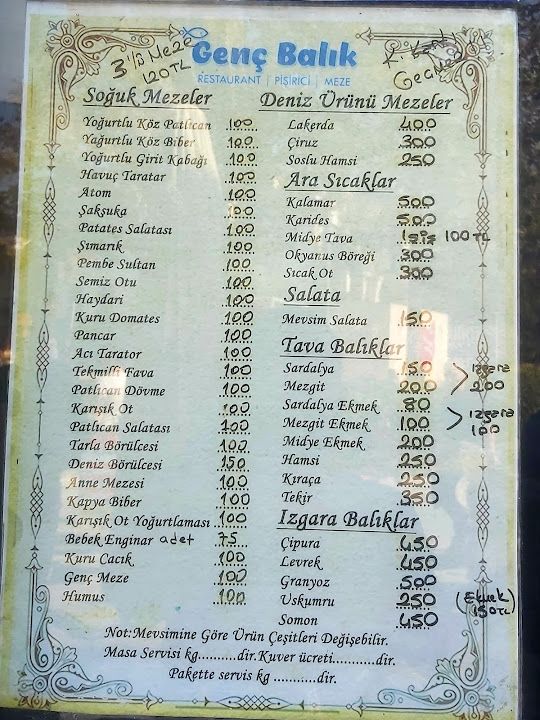 3'lü Meze
120TL
Genç Balık
RESTAURANT | PİŞİRİCİ | MEZE
K. Kartı
Geçmez
Soğuk Mezeler
Yoğurtlu Köz Patlıcan 100
Yağurtlu Köz Biber 100
Yoğurtlu Girit Kabağı 100
Havuç Taratar 100
Atom 100
Şakşuka 100
Patates Salatası 100
Şımarık 100
Pembe Sultan 100
Semiz Otu 100
Haydari 100
Kuru Domates 100
Pancar 100
Acı Tarator 100
Tekmilli Fava 100
Patlıcan Dövme 100
Karışık Ot 100
Patlıcan Salatası 100
Tarla Börülcesi 100
Deniz Börülcesi 150
Anne Mezesi 100
Kapya Biber 100
Karışık Ot Yoğurtlaması 100
Bebek Enginar adet 75
Kuru Cacık 100
Genç Meze 100
Humus 100
Deniz Ürünü Mezeler
Lakerda 400
Çiruz 300
Soslu Hamsi 250
Ara Sıcaklar
Kalamar 500
Karides 500
Midye Tava 100TL
Okyanus Böreği 300
Sıcak Ot 300
Salata
Mevsim Salata 150
Tava Balıklar
Sardalya 150
Mezgit 200
ızgara
200
Sardalya Ekmek 80
Mezgit Ekmek 100
ızgara
100
Midye Ekmek 200
Hamsi 250
Kıraça 250
Tekir 350
Izgara Balıklar
Çipura 450
Levrek 450
Granyoz 500
Uskumru 250 (Ekmek
150TL)
Somon 450
Not:Mevsimine Göre Ürün Çeşitleri Değişebilir.
Masa Servisi kg..........dir.Kuver ücreti...........dir.
Pakette servis kg ............dir.